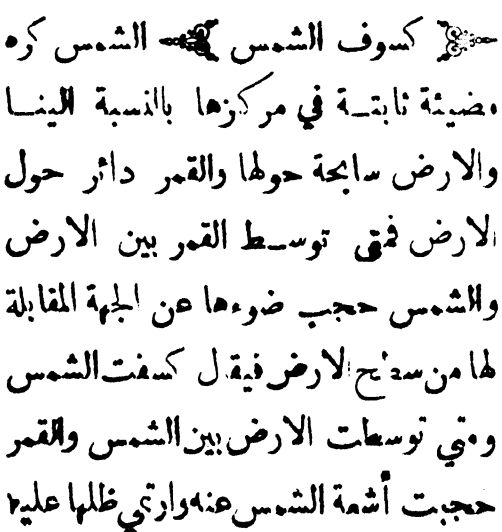 كسوف الشمس الشمس كره
مضيئة ثابتـة في مركزها بالنسبة الينـا
والارض سابحة حولها والقمر دائر حول
الارض فمتى توسـط القمر بين الارض
والشمس حجب ضوءها عن الجهة المقابلة
لها من سطح الارض فيقال كسفت الشمس
ومتي توسطت الارض بين الشمس والقمر
حجبت أشعة الشمس عنه وارتمي ظلها عليه